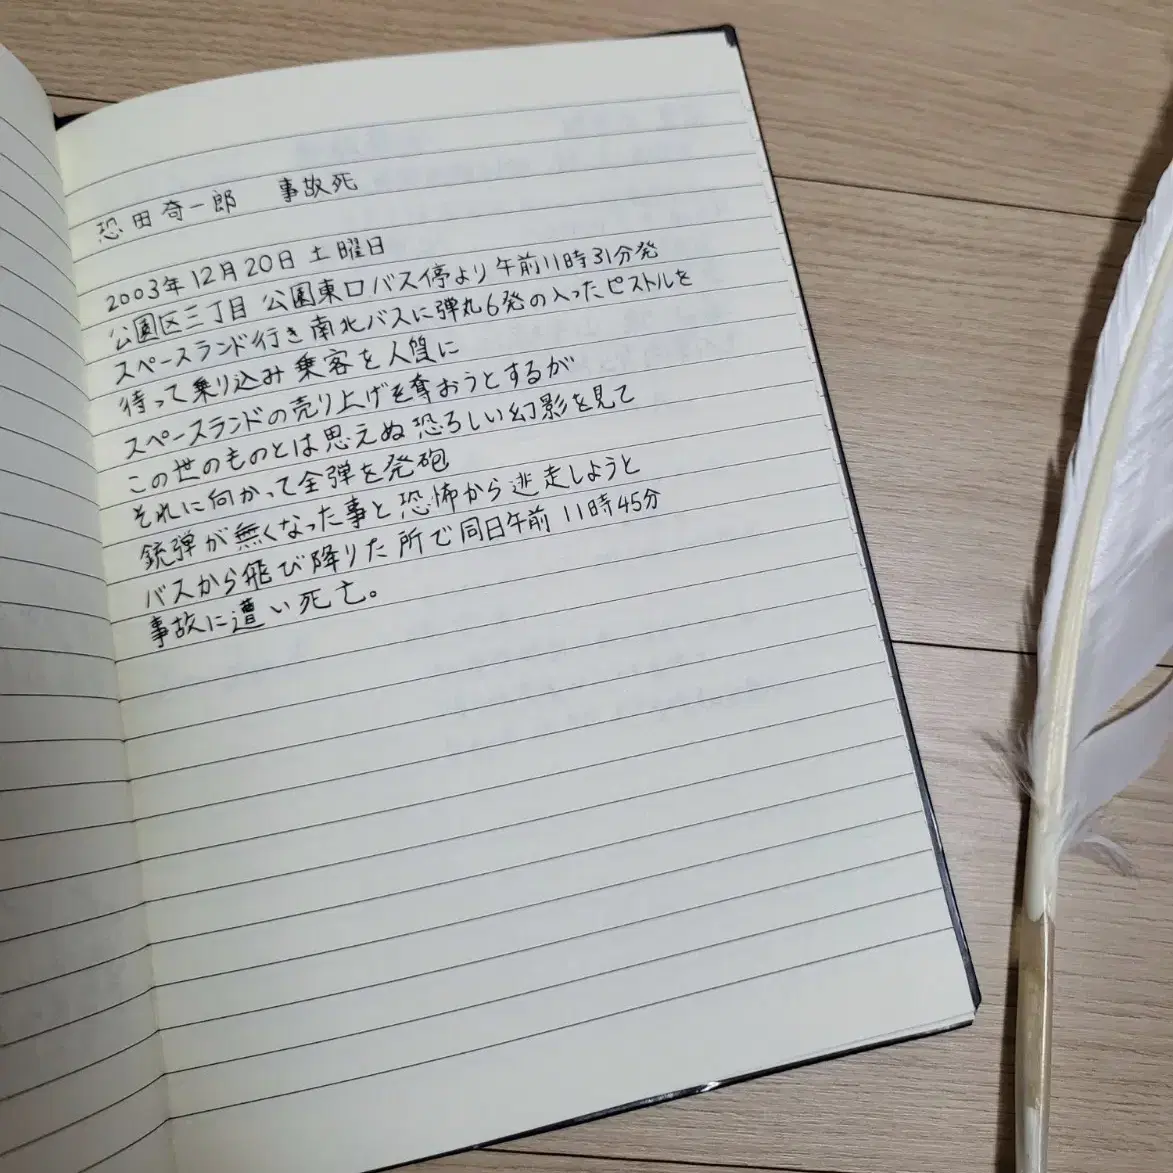 恐田奇一郎 事故死
2003年12月20日 土曜日
公園区三丁目 公園東口バス停より午前11時31分発
スペースランド行き南北バスに弾丸6発の入ったピストルを
待って乗り込み乗客を人質に
スペースランドの売り上げを奪おうとするが
この世のものとは思えぬ恐ろしい幻影を見て
それに向かって全弾を発砲
銃弾が無くなった事と恐怖から逃走しようと
バスから飛び降りた所で同日午前 11時45分
事故に遭い死亡。